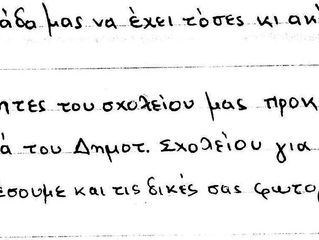 άδα μας να έχει τόσες κι ακ
ητες του σχολείου μας προκ
ά του Δημοτ. Σχολείου για
έσουμε και τις δικές σας φωτο